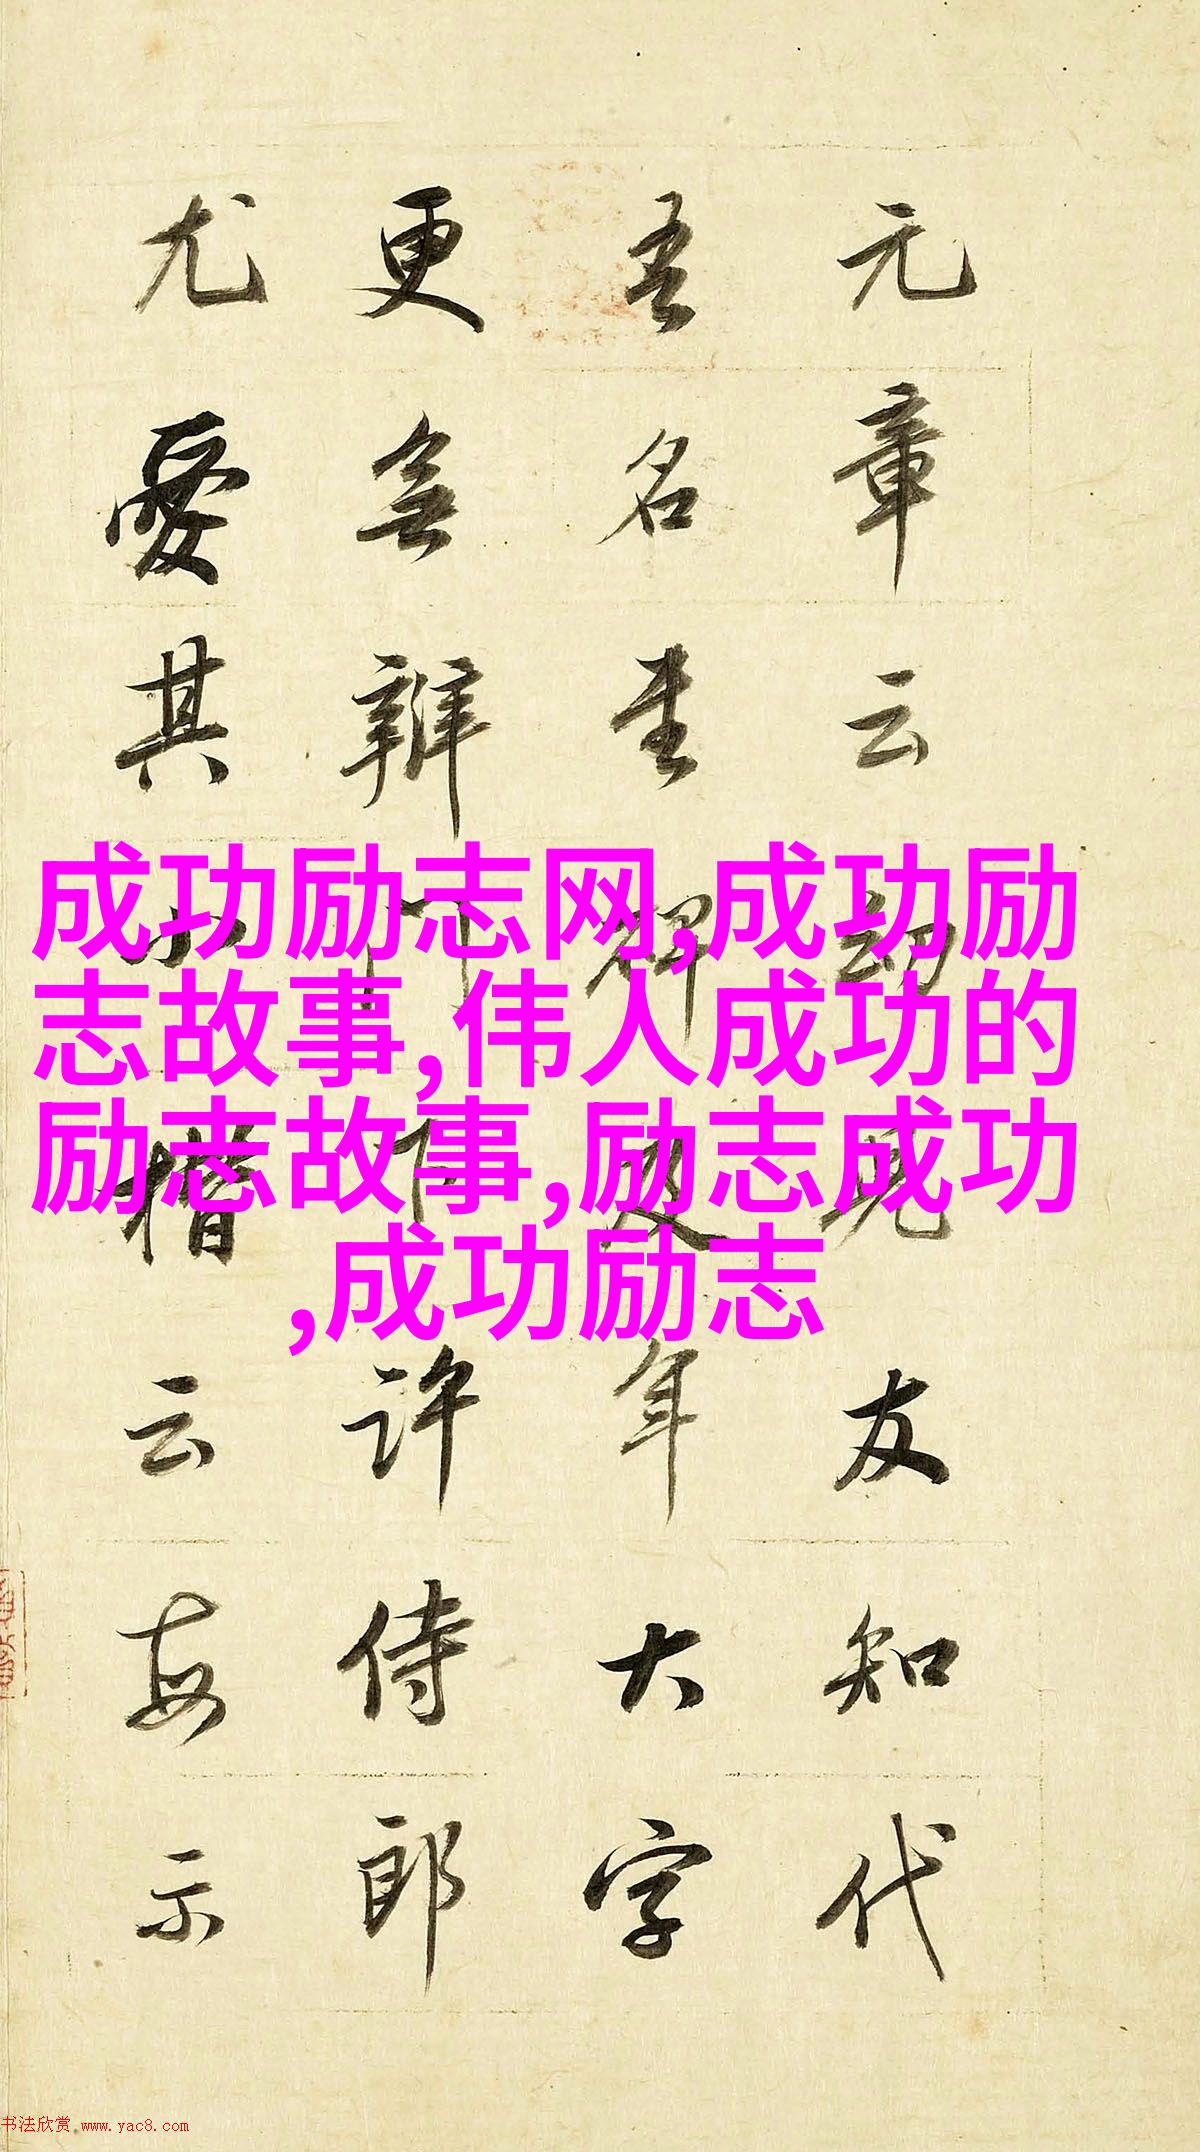 元章云幼兒友知代
吾名書碑及手大字
更無辨門下許侍郎
尤愛其小楷云每示
成功励志网,成功励
志故事,伟人成功的
励志故事,励志成功
,成功励志
书法欣赏 www.yac8.com